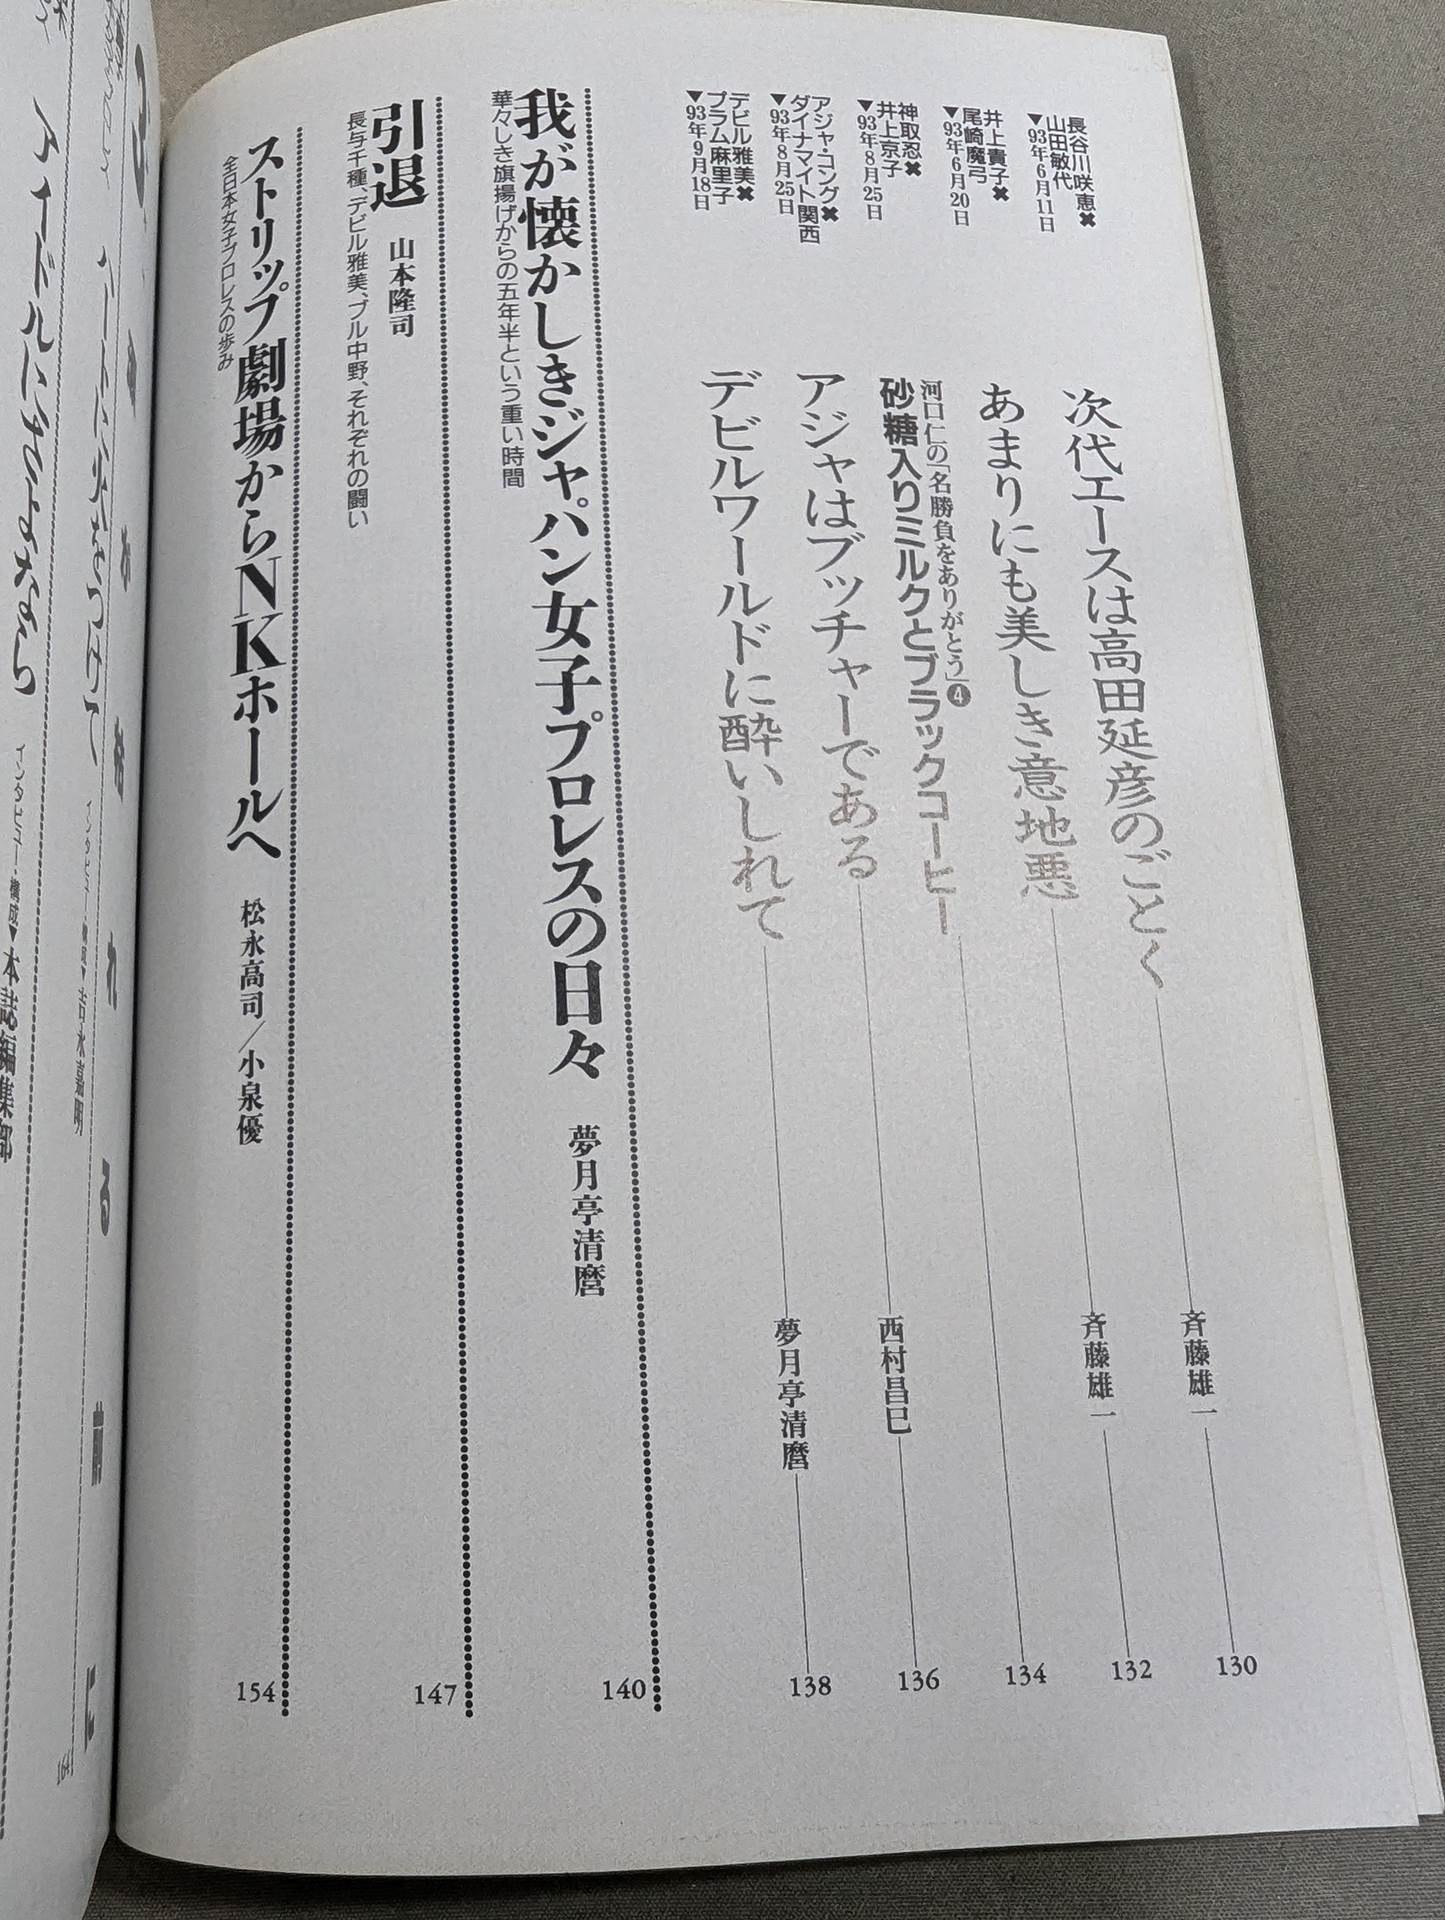 長谷川咲恵✖
山田敏代
▼93年6月11日
次代エースは高田延彦のごとく
斉藤雄一
130
井上貴子✖
尾崎魔弓
▼93年6月20日
あまりにも美しき意地悪
斉藤雄一
132
河口仁の「名勝負をありがとう」❹
砂糖入りミルクとブラックコーヒー
134
神取忍✖
井上京子
▼93年8月25日
アジャはブッチャーである
西村昌巳
136
アジャ・コング✖
ダイナマイト関西
▼93年8月25日
デビルワールドに酔いしれて
夢月亭清麿
138
デビル雅美✖
プラム麻里子
▼93年9月18日
我が懐かしきジャパン女子プロレスの日々
夢月亭清麿
140
華々しき旗揚げからの五年半という重い時間
引退
山本隆司
147
長与千種、デビル雅美、ブル中野、それぞれの闘い
ストリップ劇場からNKホールへ
松永高司／小泉優
154
全日本女子プロレスの歩み
ハートに火をつけて
インタビュー・構成▼吉水嘉明
アイドルにさよなら
インタビュー・構成▼本誌編集部